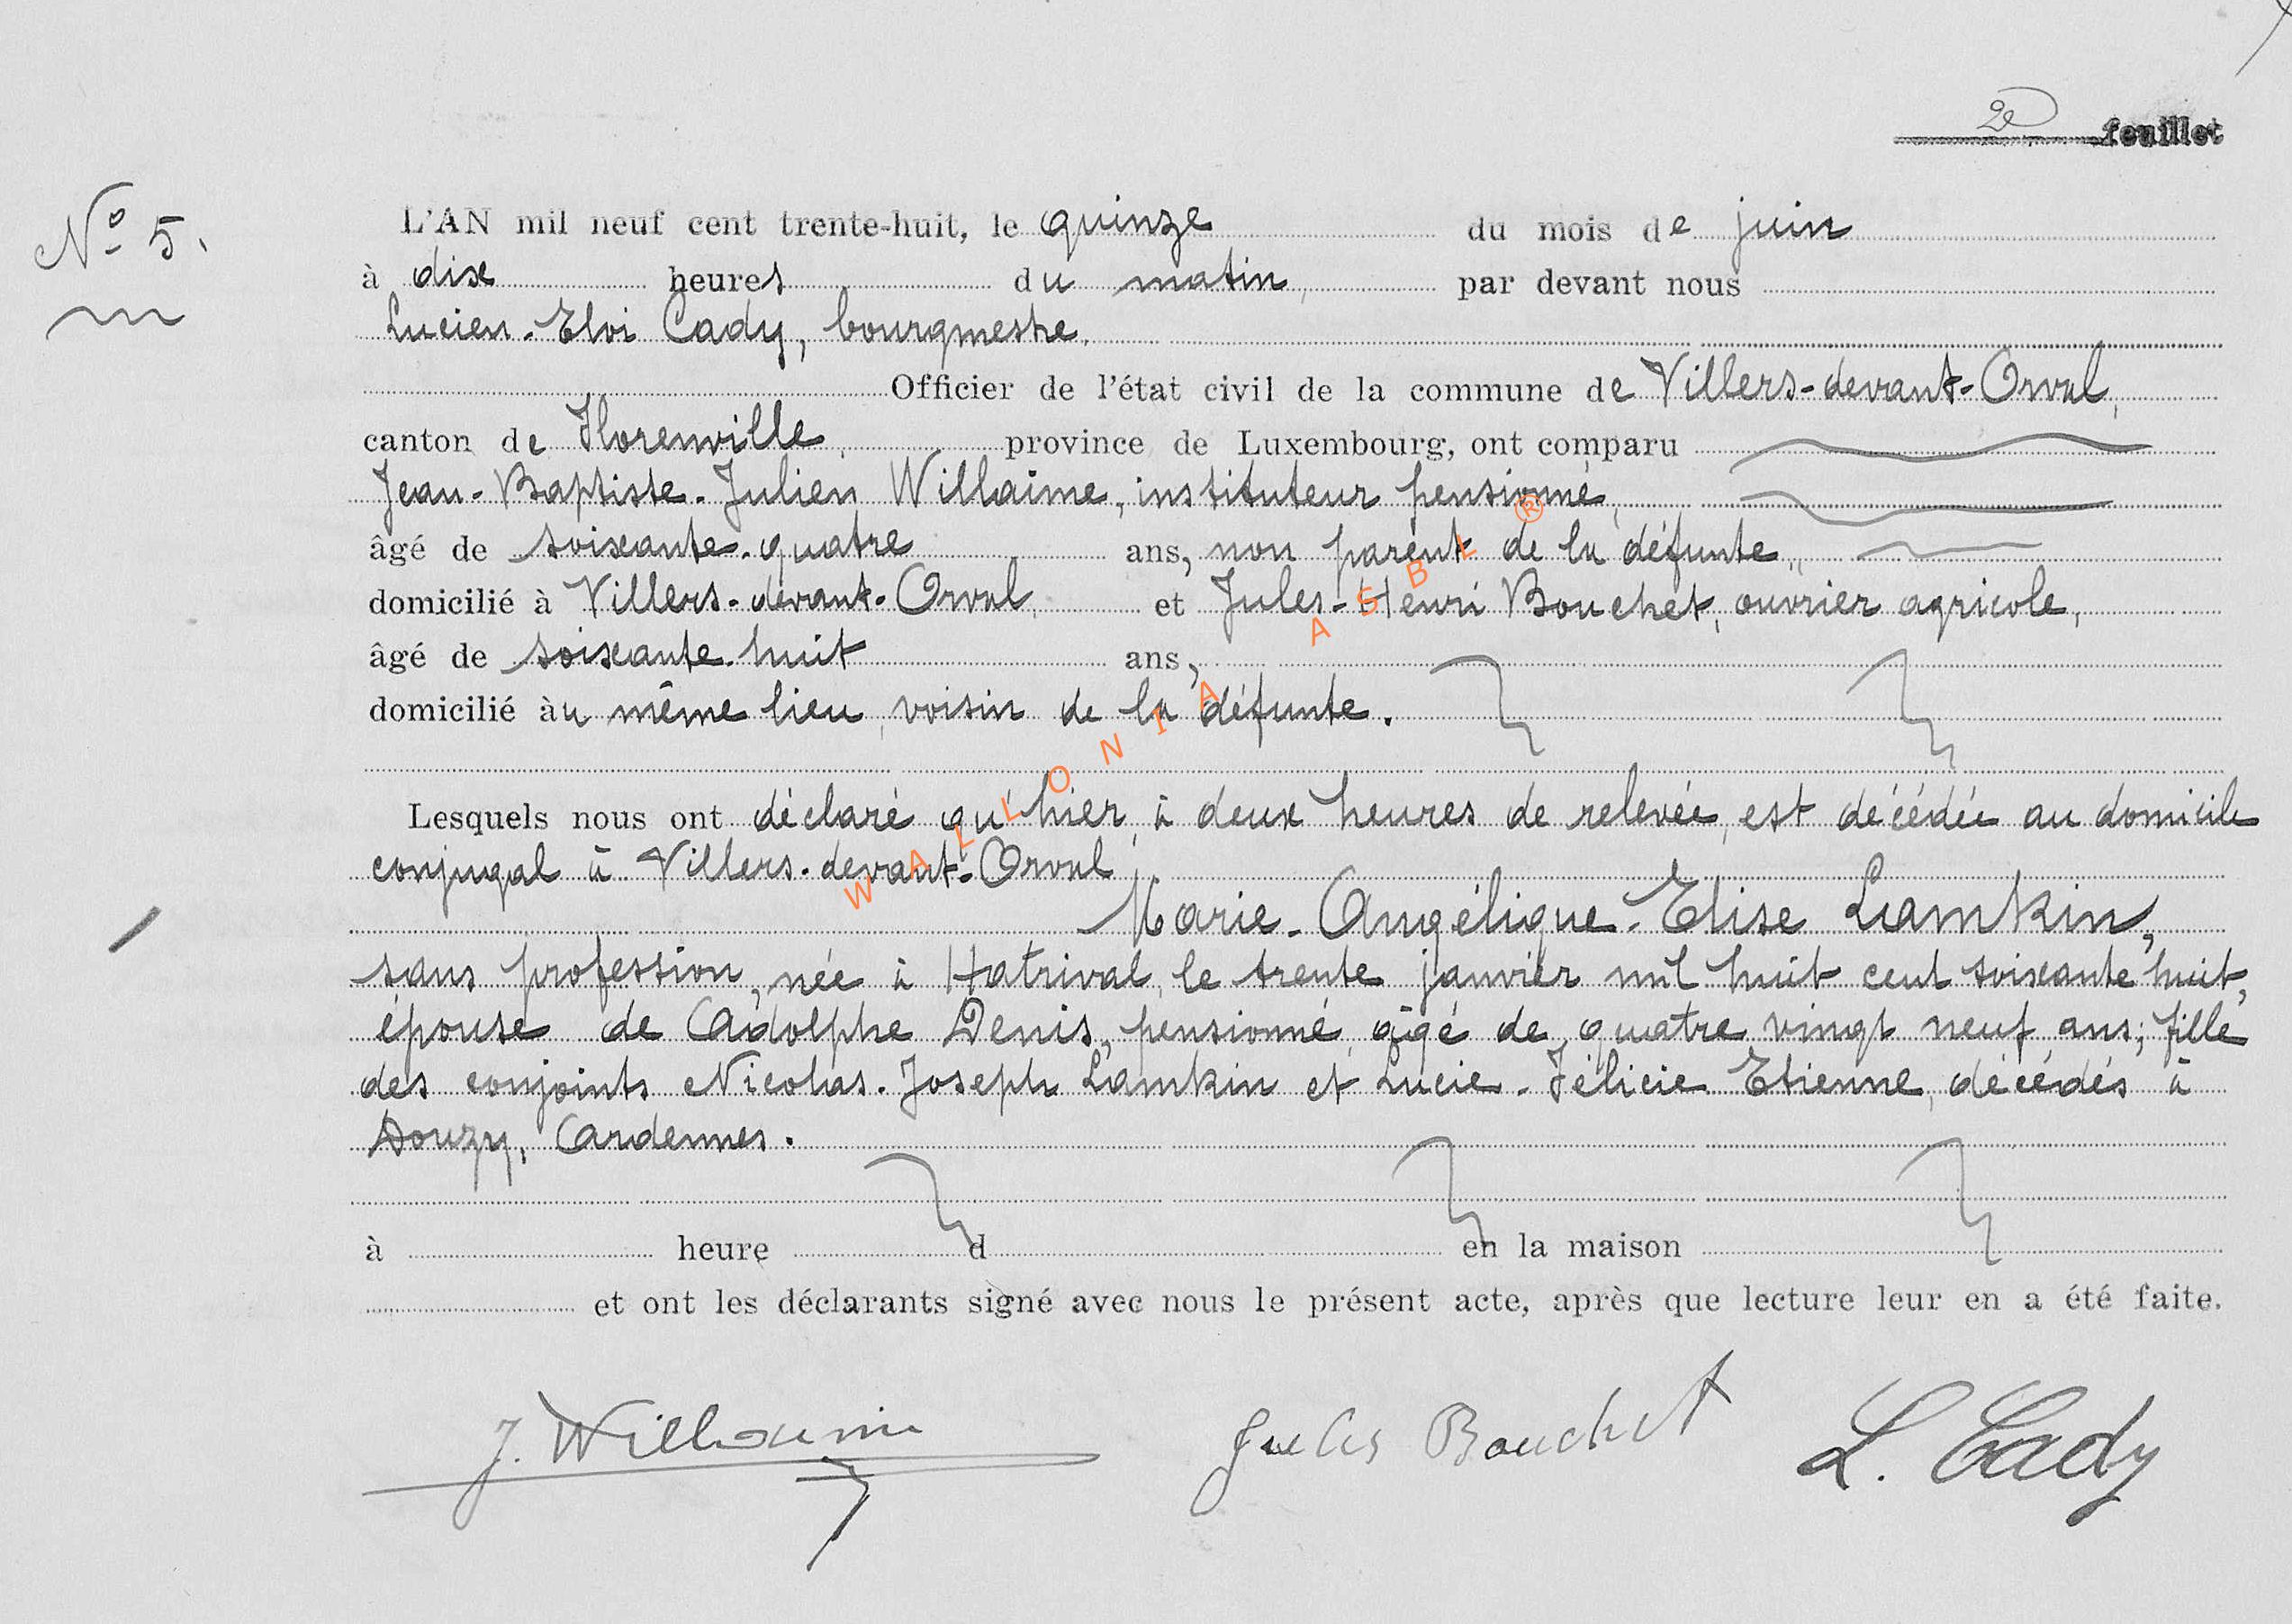 2e feuillet
N° 5.
L'AN mil neuf cent trente-huit, le quinze du mois de juin
à dix heures du matin, par devant nous
Lucien-Eloi Cady, bourgmestre,
Officier de l'état civil de la commune de Villers-devant-Orval,
canton de Florenville, province de Luxembourg, ont comparu
Jean-Baptiste-Julien Willaime, instituteur pensionné,
âgé de soixante-quatre ans, non parent de la défunte,
domicilié à Villers-devant-Orval, et Jules-Henri Bouchet, ouvrier agricole,
âgé de soixante-huit ans,
domicilié au même lieu, voisin de la défunte.
Lesquels nous ont déclaré qu'hier, à deux heures de relevée, est décédée au domicile
conjugal à Villers-devant-Orval,
Marie-Angélique-Elise Lamkin,
sans profession, née à Hatrival, le trente janvier mil huit cent soixante huit,
épouse de Adolphe Denis, pensionné, âgé de quatre vingt neuf ans; fille
des conjoints Nicolas-Joseph Lamkin et Lucie-Félicie Etienne, décédés à
Douzy, Ardennes.
à heure d en la maison
et ont les déclarants signé avec nous le présent acte, après que lecture leur en a été faite.
J. Willaime Jules Bouchet L. Cady
WALLONIA ASBL ®